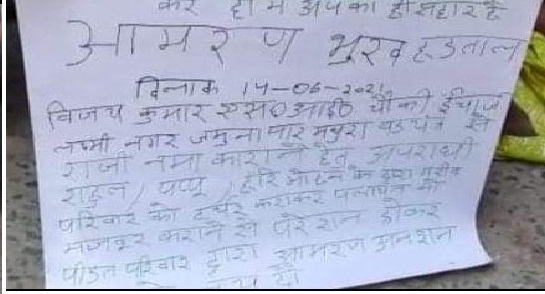 कर हो म अपका ही सहार है
आमरण भूख हडताल
दिनाक 14-06-2021
विजय कुमार एस० आई० चौकी ईंचार्ज
लक्ष्मी नगर जमुनापार मथुरा षडयंत्र से
राजी नमा कराने हेतु अपराधी
राहुल, पप्पू, हरि मोहन के द्वारा गरीब
परिवार को टार्चर कराकर पलायन को
मजबूर कराने से परेशान होकर
पीडत परिवार द्वारा आमरण अनशन